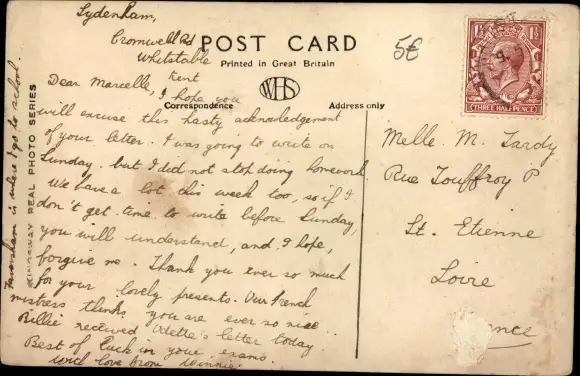 Sydenham,
Cromwell Rd
Whitstable
Kent
POST CARD
Printed in Great Britain
WHS
Correspondence
Address only
5€
1½ 1½
THREE HALFPENCE
Dear Marcelle, I hope you
will excuse this hasty acknowledgement
of your letter. I was going to write on
Sunday, but I did not stop doing homework.
We have a lot this week too, so if I
don't get time to write before Sunday,
you will understand, and, I hope,
forgive me. Thank you ever so much
for your lovely presents. Our French
mistress thinks you are ever so nice.
Billie received Odette's letter today
Best of luck in your exams.
With love from Winnie.
Faversham is where I go to school.
KINGSWAY REAL PHOTO SERIES
Melle. M. Tardy
Rue Jouffroy P
St. Etienne
Loire